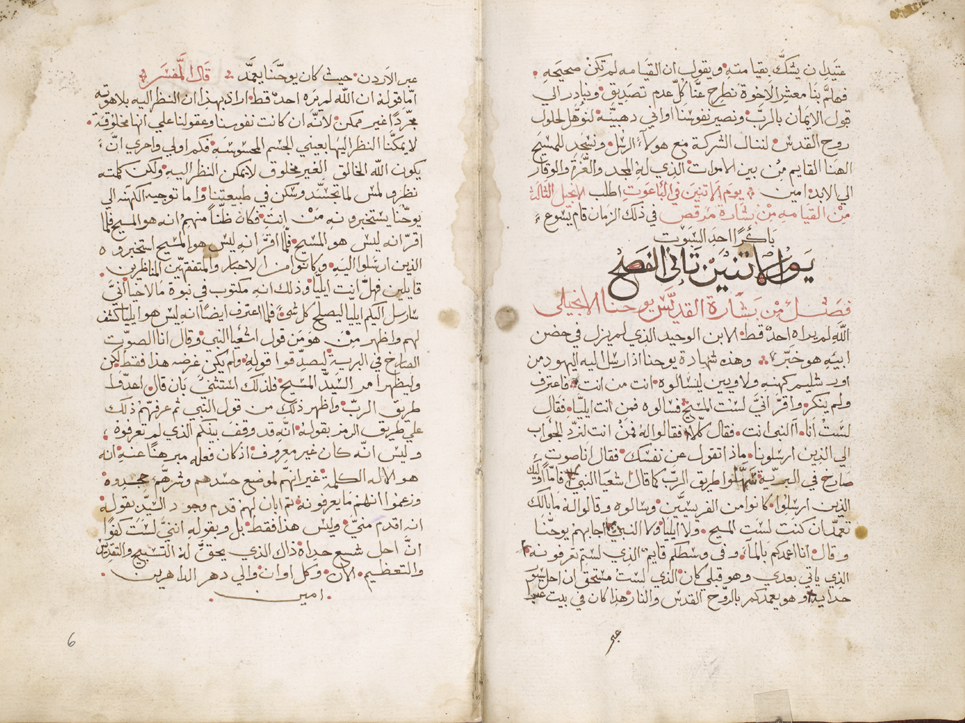 عتيد ان يشكّ بقيامته ويقول ان القيامه لم تكن صحيحه
فهلمّ بنا معشر الاخوة نطرح عنّا كلّ عدم تصديق ونبادر الي
قبول الايمان بالربّ ونصير نفوسنا اواني ذهبية لنوهّل لحلول
روح القدس لننال الشركة مع هولاء الرسل ونسجد للمسيح
الهنا القايم من بين الاموات الذي له المجد والعزة والوقار
الي الابد امين يوم الاتنين في الباعوت اطلب الانجيل الثالث
من القيامه من بشارة مرقص في ذلك الزمان قام يسوع
باكرًا احد السبوت
يوم الاتنين تاني الفصح
فصل من بشارة القديس يوحنا الانجيلي
الله لم يراه احد قط الابن الوحيد الذي لم يزل في حضن
ابيه هو خبّر وهذه شهادة يوحنا اذ ارسل اليه اليهود من
اورشليم كهنه ولاويين ليسالوه انت من انت فاعترف
ولم ينكر واقرّ انيّ لست المسيح فسالوه فمن انت ايليا فقال
لست انا االنبي انت فقال كلا فقالوا له فمن انت لنردّ الجواب
الي الذين ارسلونا ماذا تقول عن نفسك فقال انا صوت
صارخ في البريّة سهّلوا طريق الربّ كما قال اشعيا النبي فاما اوليك
الذين ارسلوا كانوا من الفريسيّين وسالوه وقالوا له ما بالك
تعمّد ان كنت لست المسيح ولا ايليا ولا النبي اجابهم يوحنّا
وقال انا اعمدكم بالماء وفي وسطكم قايم الذي لستم تعرفونه
الذي ياتي بعدي وهو قبلي كان الذي لست مستحق ان احل سير
حذايه وهو يعمدكم بالرّوح القدس والنار هذا كان في بيت عنيا
عبر
عبر الاردن حيث كان يوحنّا يعمّد قال المفسر
امّا قوله ان الله لم يره احد قط اراد بهذا ان النظر اليه بلاهوته
مجردًا غير ممكن لانّه ان كانت نفوسنا وعقولنا علي انها مخلوقة
لا يمكنّا النظر اليها بعيني الجسم المحسوسة فكم اولي واحري انّه
يكون الله الخالق الغير مخلوق لا يمكن النظر اليه ولكن كلمته
نظر ولمس لما تجسّد وسكن في طبيعتنا واما توجيه الكهنه الي
يوحنّا يستخبرونه من انت فكان ظنّا منهم انه هو المسيح فلما
اقرّ انه ليس هو المسيح فلما اقرّ انه ليس هو المسيح استخبروه
الذين ارسلوا اليه وكانوا من الاحبار والمتفقهين المناظرين
قايلين فهل انت ايليا وذلك انه مكتوب في نبوة ملاخيا انيّ
سارسل اليكم ايليا ليصلح كل شي فلما اعترف ايضًا انه ليس هو ايليا كشف
لهم واظهر من هو من قول اشعيا النبي وقال انا الصوت
الصارخ في البرية ليصدقوا قوله ولم يكن غرضه هذا فقط لكن
وليظهر امر السيّد المسيح فلذلك استثنيّ بان قال اعدّوا
طريق الربّ واظهر ذلك من قول النبي ثم عرفهم ذلك
علي طريق الرمز بقوله انه قد وقف بينكم الذي لم تعرفوه
وليس انّه كان غير معروف اذ كان فعله مبرهنًا عنه انه
هو الاله الكلمه غير انهم لموضع حسدهم وشرّهم جحدوه
وزعموا انهم ما يعرفونه ثم ابان لهم قدم وجود السيّد بقوله
انه اقدم منّي وليس هذا فقط بل وبقوله انني لست كفوًا
انّ احل شسع حذاه ذاك الذي يحقّ له التسبيح والتقديس
والتعظيم الان وكل اوان والي دهر الداهرين
امين
6